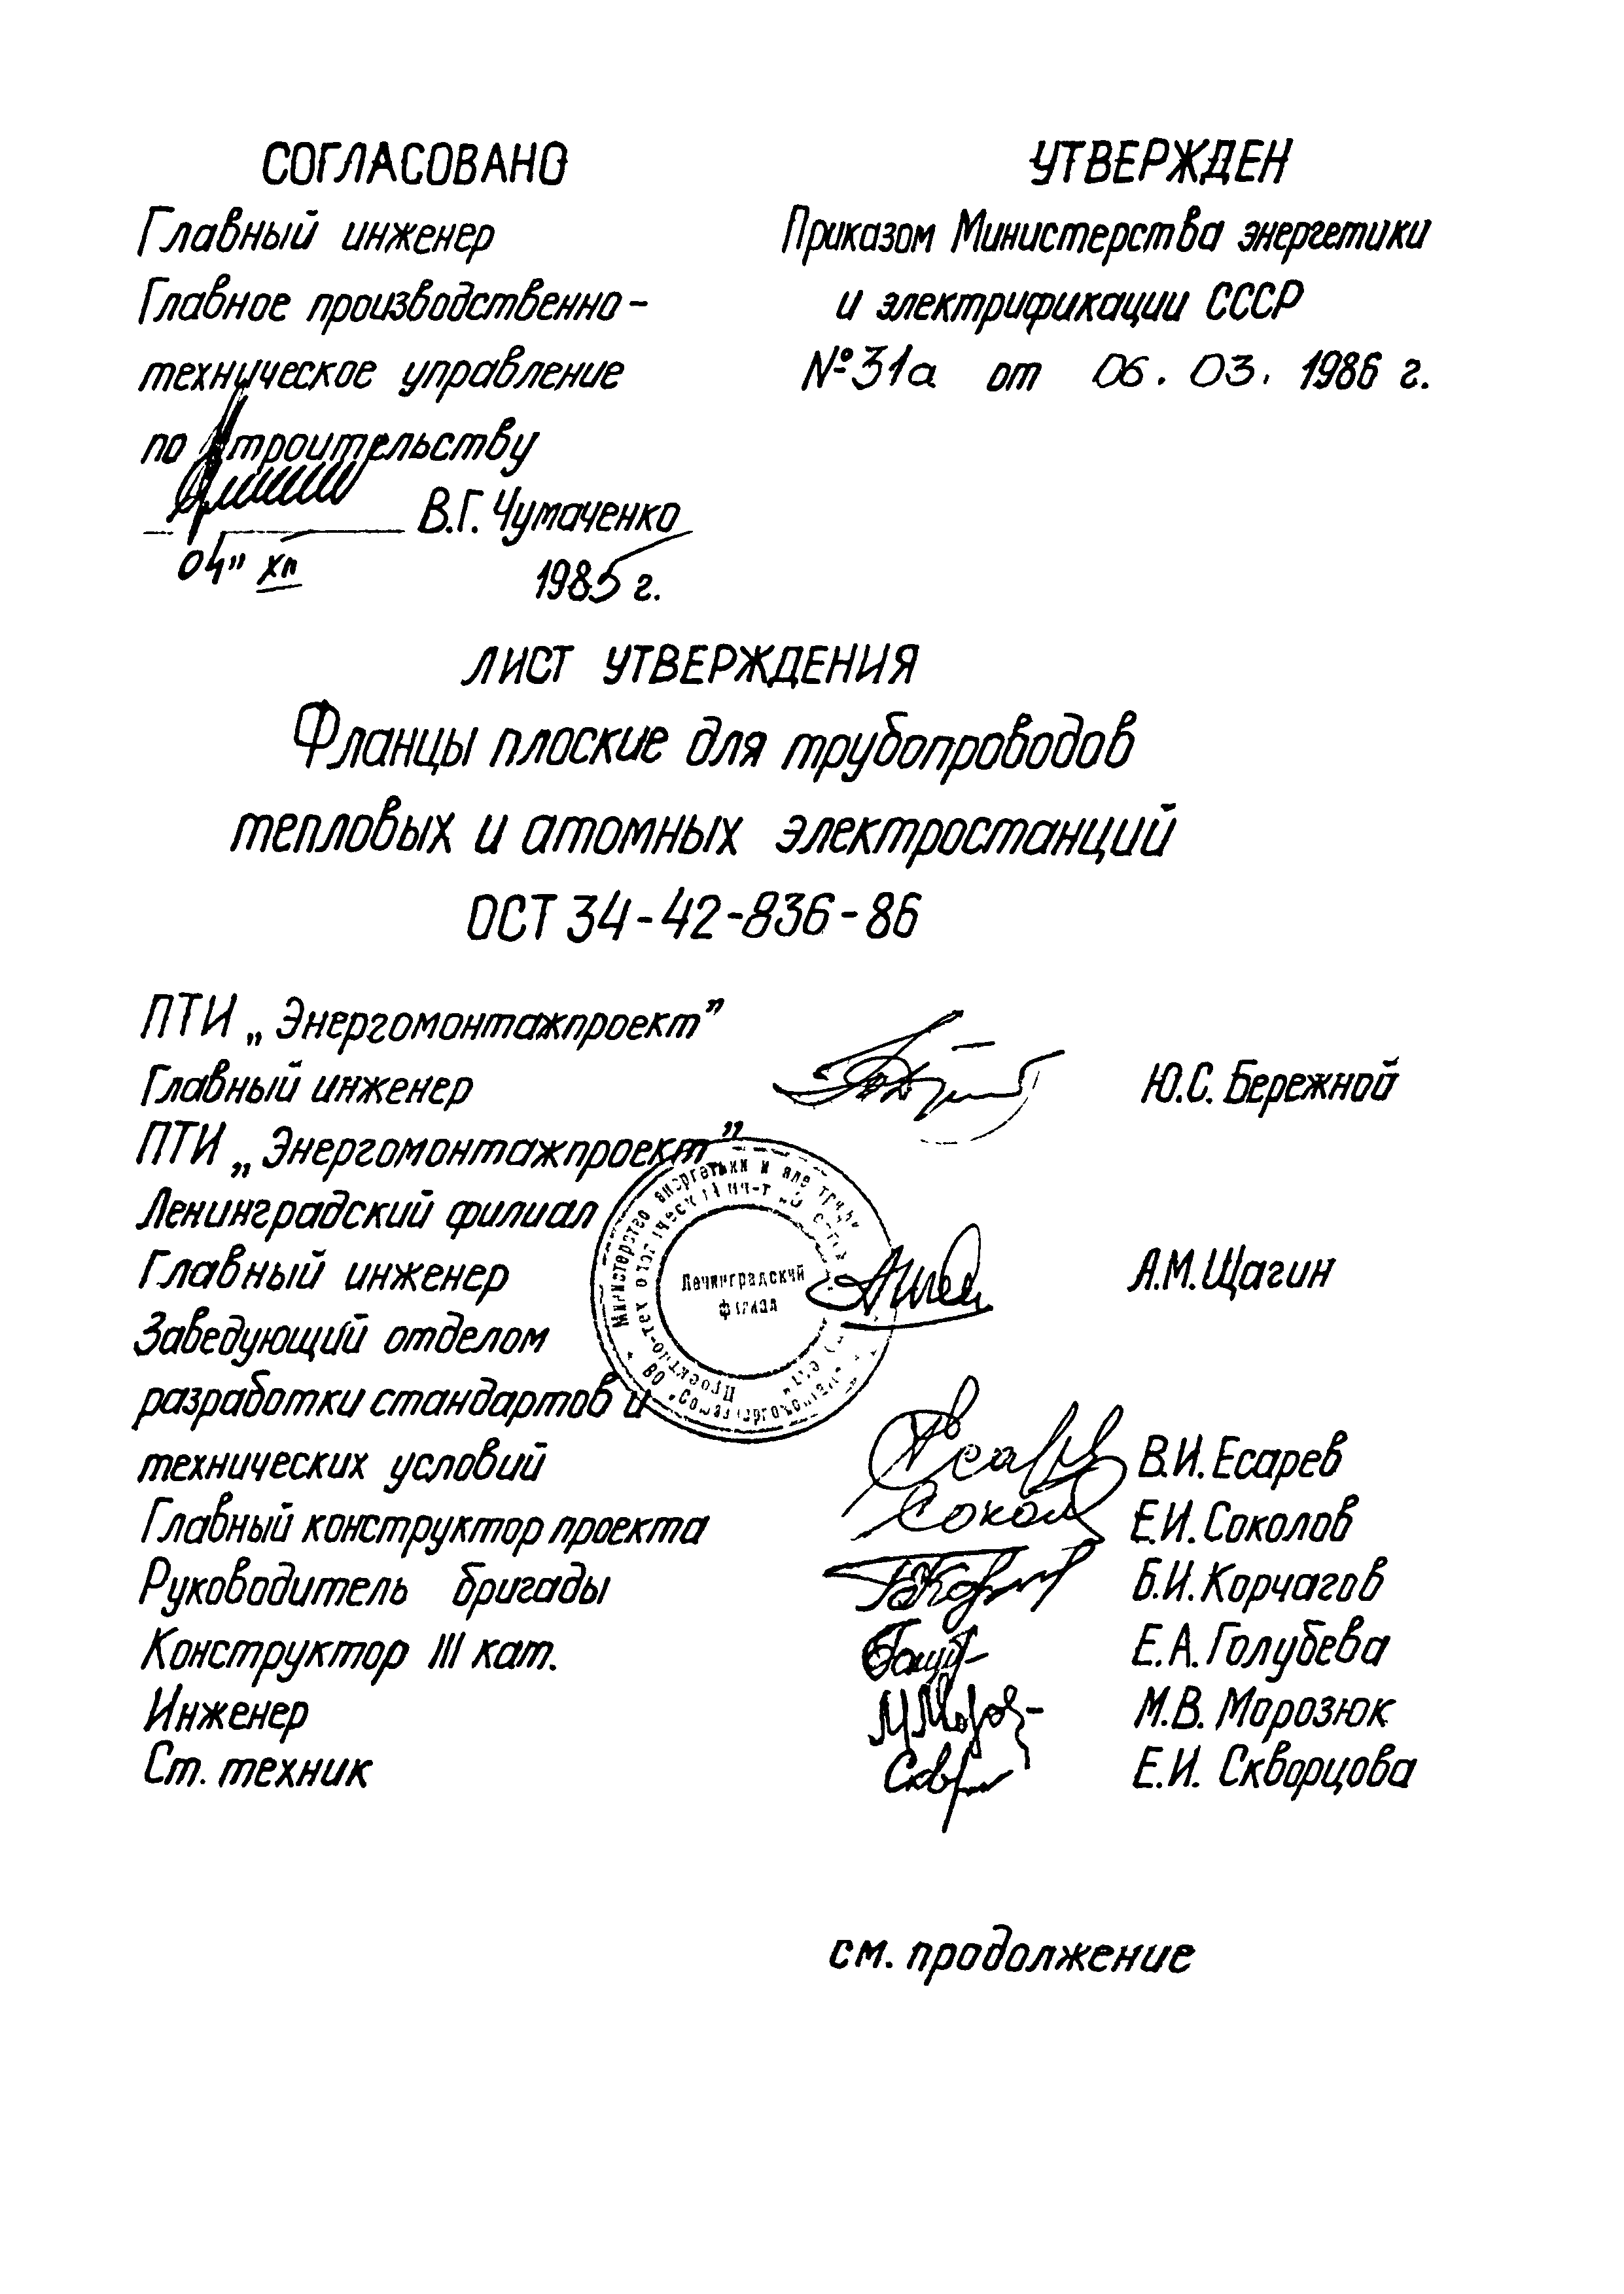 СОГЛАСОВАНО
Главный инженер
Главное производственно-
техническое управление
по строительству
В.Г. Чумаченко
04" XII 1985 г.
УТВЕРЖДЕН
Приказом Министерства энергетики
и электрификации СССР
№ 31а от 06.03.1986 г.
ЛИСТ УТВЕРЖДЕНИЯ
Фланцы плоские для трубопроводов
тепловых и атомных электростанций
ОСТ 34-42-836-86
ПТИ „Энергомонтажпроект"
Главный инженер Ю.С. Бережной
ПТИ „Энергомонтажпроект"
Ленинградский филиал
Главный инженер А.М. Щагин
Заведующий отделом
разработки стандартов и
технических условий В.И. Есарев
Главный конструктор проекта Е.И. Соколов
Руководитель бригады Б.И. Корчагов
Конструктор III кат. Е.А. Голубева
Инженер М.В. Морозюк
Ст. техник Е.И. Скворцова
Министерство энергетики и
Ленинградский
филиал
см. продолжение